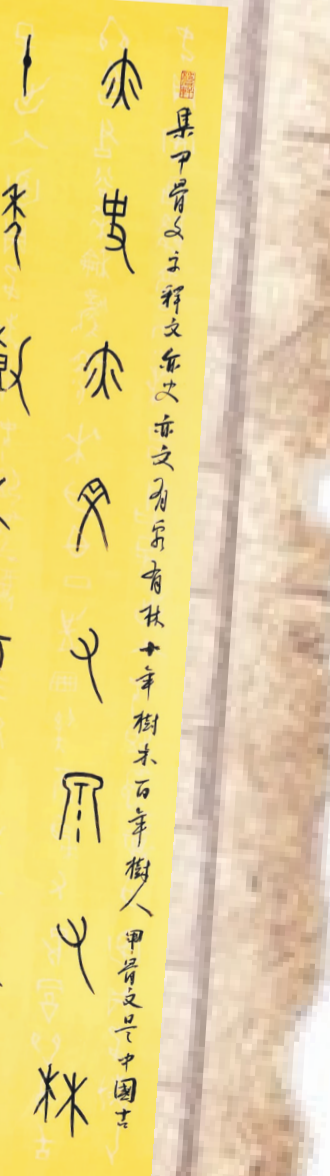 集甲骨文字釋文亦史亦文有泉有林十年樹木百年樹人甲骨文是中國古
亦史亦文有泉有林
十年